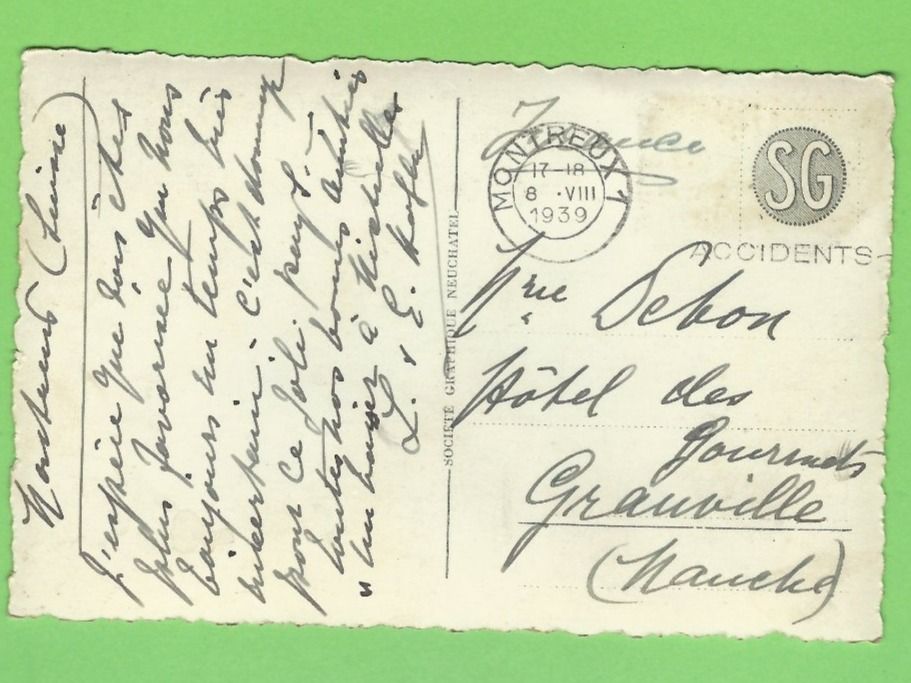 Montreux (Suisse)
J'espère que vous êtes
plus favorisée que nous
toujours un temps très
incertain. C'est dommage
pour ce joli pays. -
Toutes nos bonnes amitiés
un baiser à Michelle
L. & E.
SOCIÉTÉ GRAPHIQUE NEUCHATEL
France
MONTREUX 1
17-18
8 ·VIII
1939
SG
ACCIDENTS-
Mme Debon
Hôtel des
Gourmets
Granville
(Manche)